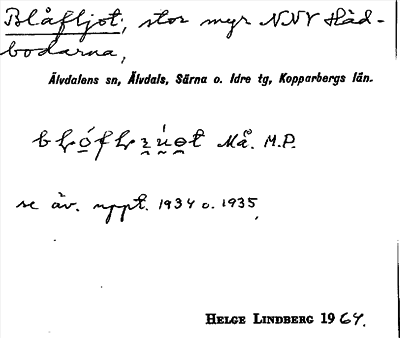 Blåfljot, stor myr NNV Håd-
bodarna,
Älvdalens sn, Älvdals, Särna o. Idre tg, Kopparbergs län.
Må. M.P.
se äv. uppt. 1934 o. 1935.
HELGE LINDBERG 1964.